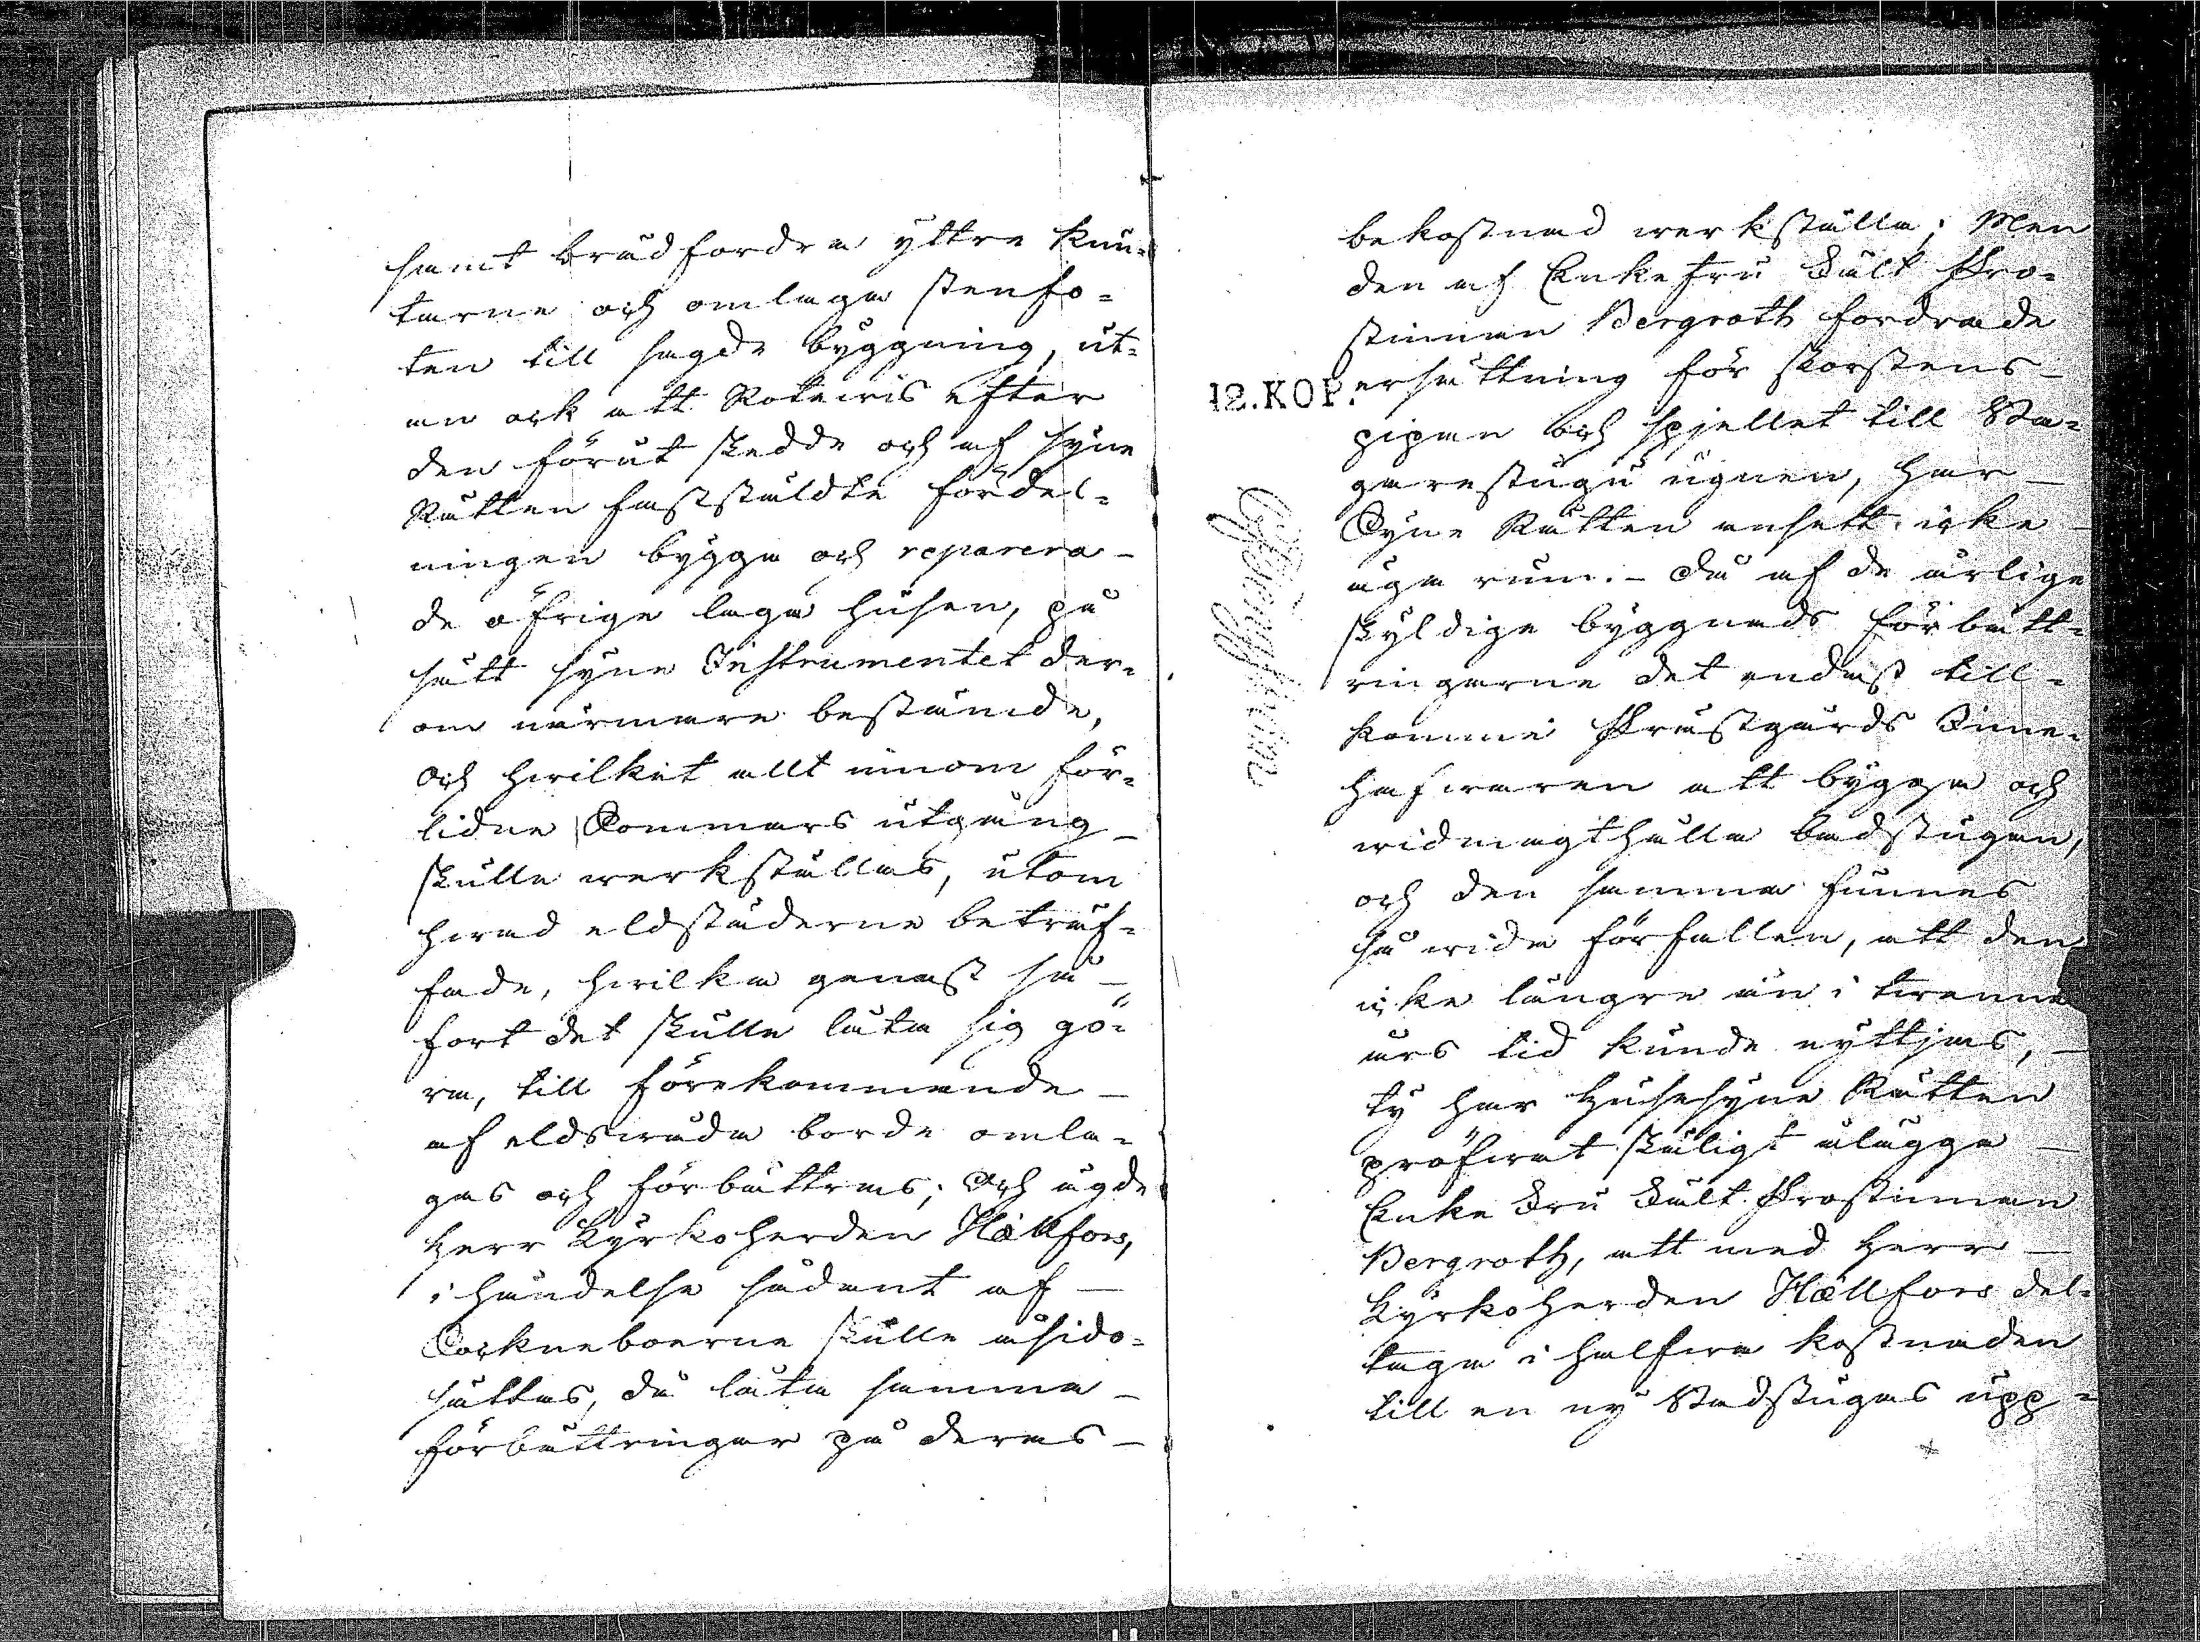 samt brädfordra yttre knu-
tarne och omlaga stenfo-
ten till sagde byggning, ut-
an ock att Rotewis efter
den förut skedde och af Syne
Rätten fastställdte fördel-
ningen bygga och reparera
de öfrige laga husen, på
sätt syne Instrumentet der-
om närmare bestämde,
och hwilket allt innom för-
lidne Sommars utgång
skulle werkställas, utom
hwad eldstäderne beträf-
fade, hwilka genast så
fort det skulle låta sig gö-
ra, till förekommande
af eldswåda borde omla-
gas och förbättras; Och ägde
Herr Kyrkoherden Hällfors,
i händelse sådant af
Sockneboerne skulle åsido-
sättas, då låta samma
förbättringar på deras
bekostnad werkställa; Men
den af Enkefru Pro-
stinnan Bergroth fordrade
12.KOP.
ersättning för skorstens
pipan och spjellet till Ba-
garestugu ugnen, har
Syne Rätten ansett icke
äga rum. Då af de årlige
skyldige byggnads förbätt-
ringarne det endast till-
komme Prästgårds Inne-
hafwaren att bygga och
widmagthålla badstugan,
och den samma funnes
så wida förfallen, att den
icke längre än i twenne
års tid kunde nyttjas,
ty har Husesyne Rätten
pröfwat skäligt ålägga
Enke Fru Prostinnan
Bergroth, att med Herr
Kyrkoherden Hällfors del-
taga i halfwa kostnaden
till en ny Badstugas upp-